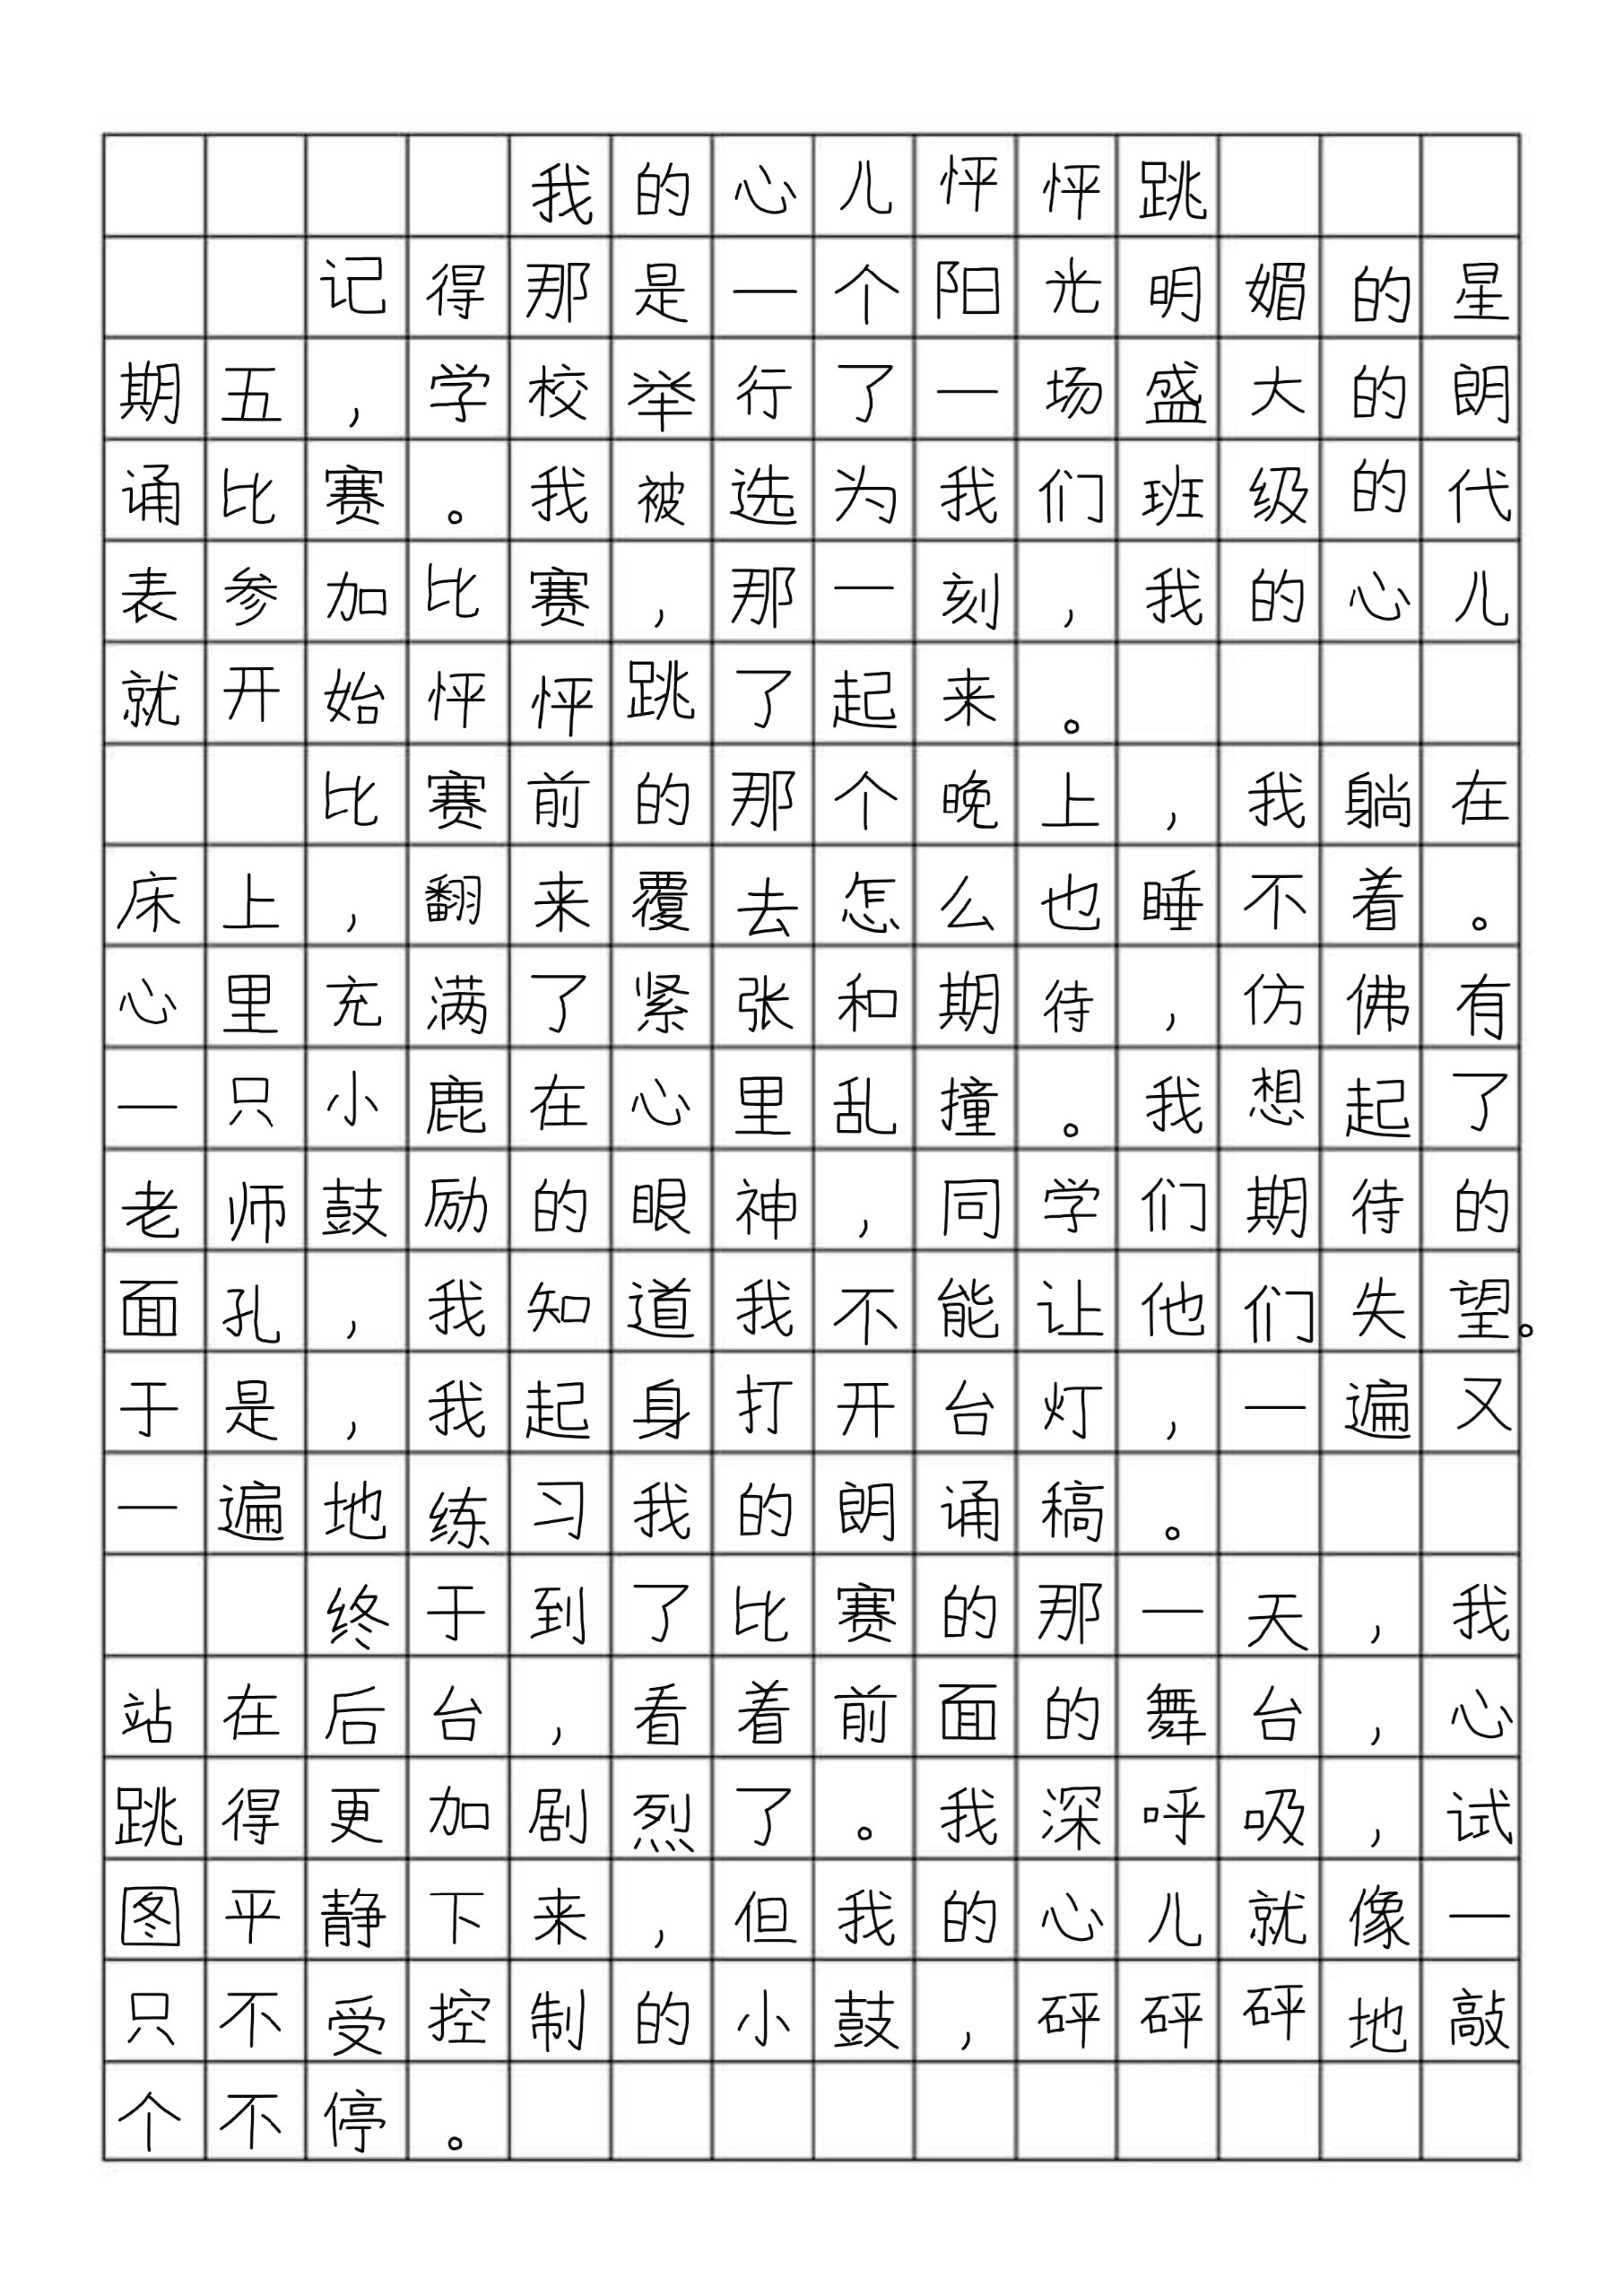 我的心儿怦怦跳
记得那是一个阳光明媚的星
期五，学校举行了一场盛大的朗
诵比赛。我被选为我们班级的代
表参加比赛，那一刻，我的心儿
就开始怦怦跳了起来。
比赛前的那个晚上，我躺在
床上，翻来覆去怎么也睡不着。
心里充满了紧张和期待，仿佛有
一只小鹿在心里乱撞。我想起了
老师鼓励的眼神，同学们期待的
面孔，我知道我不能让他们失望。
于是，我起身打开台灯，一遍又
一遍地练习我的朗诵稿。
终于到了比赛的那一天，我
站在后台，看着前面的舞台，心
跳得更加剧烈了。我深呼吸，试
图平静下来，但我的心儿就像一
只不受控制的小鼓，砰砰砰地敲
个不停。